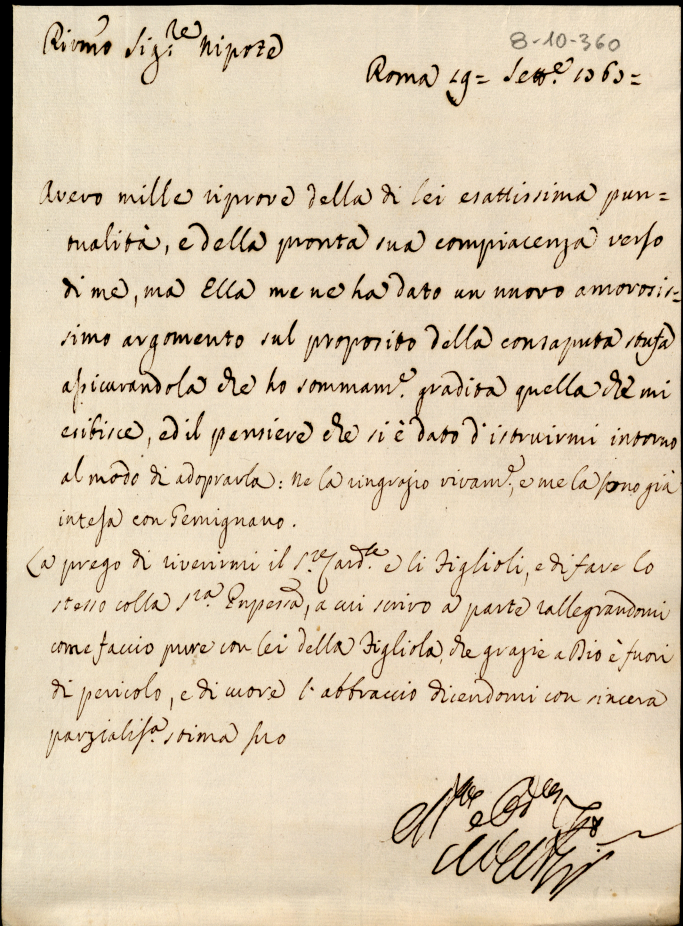 8-10-360
Rivmo Sig.re Nipote
Roma 19= Sett.e 1763=
Avevo mille riprove della di lei esattissima pun=
tualità, e della pronta sua compiacenza verso
di me, ma Ella me ne ha dato un nuovo amorosis=
simo argomento sul proposito della consaputa stufa
assicurandola che ho sommam.e gradita quella che mi
esibisce, ed il pensiere che si è dato d'istruirmi intorno
al modo di adoprarla: Ne la ringrazio vivam.e, e me la sono già
intesa con Gemignano.
La prego di riverirmi il S.re Card.le e li Figlioli, e di fare lo
stesso colla S.ra, a cui scrivo a parte rallegrandomi
come faccio pure con lei della Figliola, che grazie a Dio è fuori
di pericolo, e di cuore l'abbraccio dicendomi con sincera
parzialiss.a stima suo